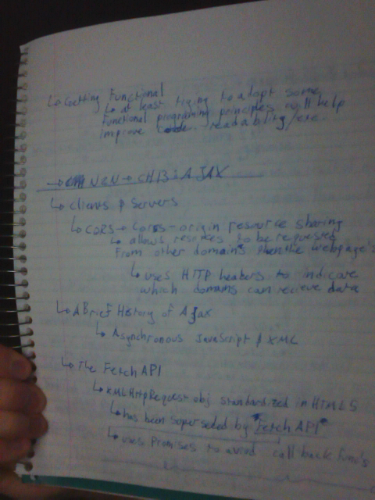 ↳ Getting Functional
↳ a least trying to adapt some
functional programing principles will help
improve code readability/exe
NEW → CH13: AJAX
↳ Clients & Servers
↳ CORS → Cross-origin resource sharing
↳ allows resources to be requested
from other domains then the webpage's
↳ uses HTTP headers to indicate
which domains can recieve data
↳ A Brief History of Ajax
↳ Asynchronous JavaScript & XML
↳ The Fetch API
↳ XMLHttpRequest obj standardized in HTML5
↳ has been superseded by "Fetch API"
↳ uses Promises to avoid callback func's